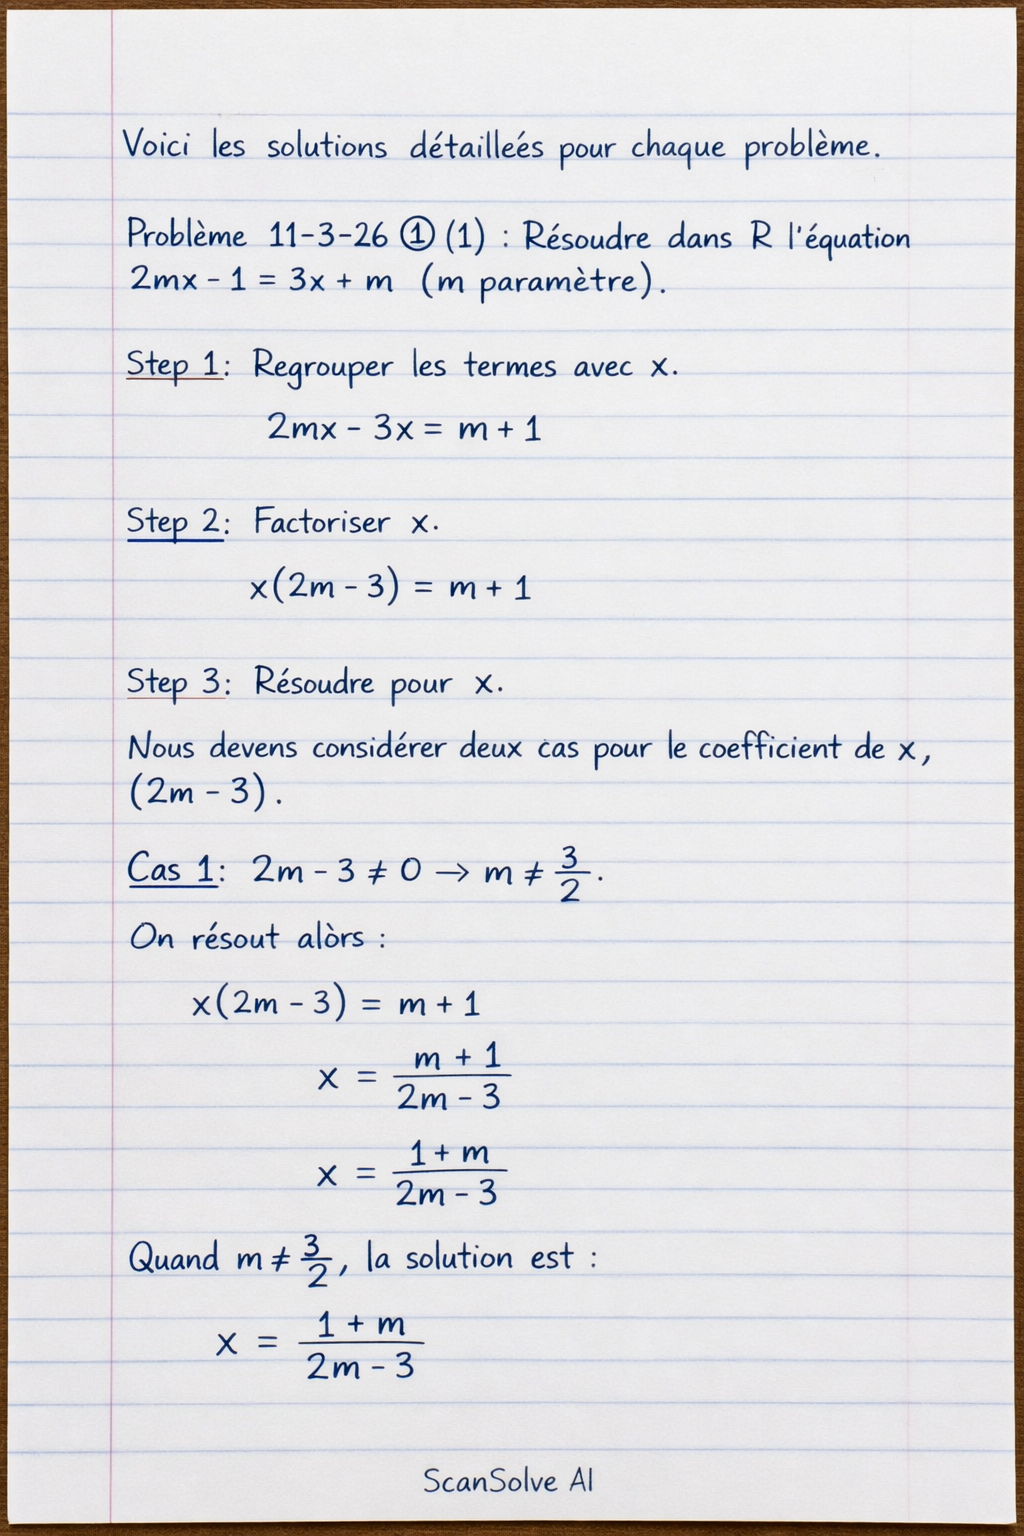 Voici les solutions détailleés pour chaque problème.
Problème 11-3-26 ① (1) : Résoudre dans R l'équation
2mx - 1 = 3x + m (m paramètre).
Step 1: Regrouper les termes avec x.
2mx - 3x = m + 1
Step 2: Factoriser x.
x(2m - 3) = m + 1
Step 3: Résoudre pour x.
Nous devens considérer deux cas pour le coefficient de x,
(2m - 3).
Cas 1: 2m - 3 ≠ 0 → m ≠ 3/2.
On résout alòrs :
x(2m - 3) = m + 1
x = (m + 1)/(2m - 3)
x = (1 + m)/(2m - 3)
Quand m ≠ 3/2, la solution est :
x = (1 + m)/(2m - 3)
ScanSolve AI